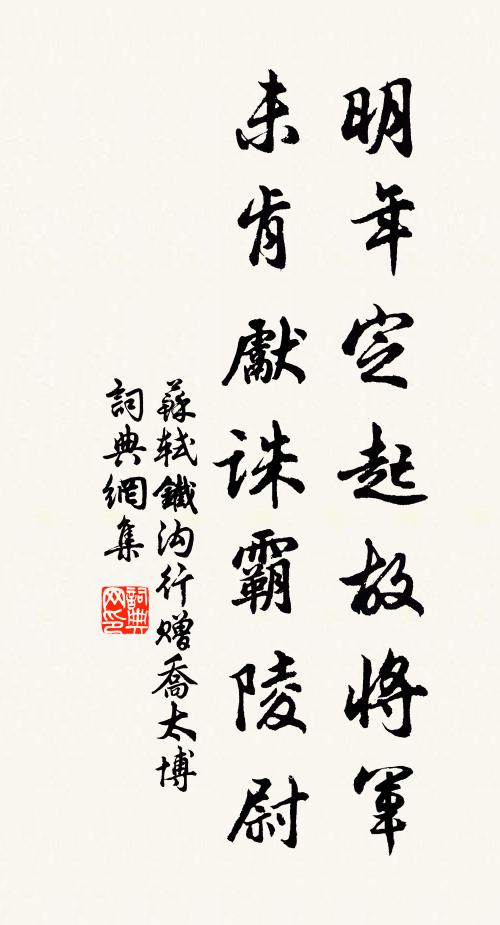 明年定起故將軍
未肯獻誅霸陵尉
蘇軾鐵沟行赠喬太博
詞典網集
詞典网印